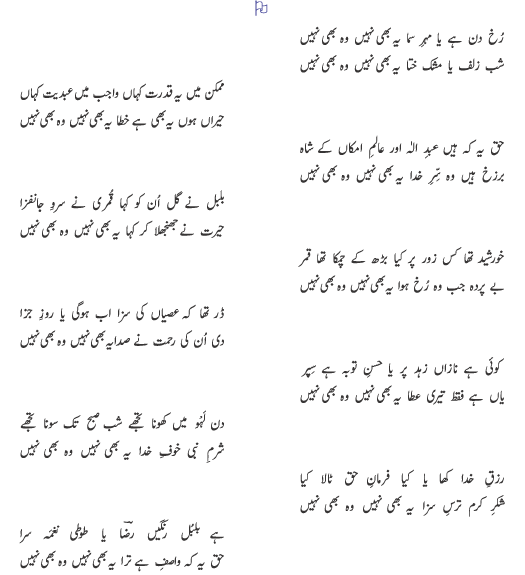 رُخ دن ہے یا مہرِ سما یہ بھی نہیں وہ بھی نہیں
شب زلف یا مشکِ ختا یہ بھی نہیں وہ بھی نہیں
ممکن میں یہ قدرت کہاں واجب میں عبدیت کہاں
حیراں ہوں یہ بھی ہے خطا یہ بھی نہیں وہ بھی نہیں
حق یہ کہ ہیں عبدِ الٰہ اور عالمِ امکاں کے شاہ
برزخ ہیں وہ سِرِّ خدا یہ بھی نہیں وہ بھی نہیں
بلبل نے گل اُن کو کہا قُمری نے سروِ جانفزا
حیرت نے جھنجھلا کر کہا یہ بھی نہیں وہ بھی نہیں
خورشید تھا کس زور پر کیا بڑھ کے چمکا تھا قمر
بے پردہ جب وہ رُخ ہوا یہ بھی نہیں وہ بھی نہیں
ڈر تھا کہ عصیاں کی سزا اب ہوگی یا روزِ جزا
دی اُن کی رحمت نے صدا یہ بھی نہیں وہ بھی نہیں
کوئی ہے نازاں زہد پر یا حسنِ توبہ ہے سِپر
یاں ہے فقط تیری عطا یہ بھی نہیں وہ بھی نہیں
دن لَہْو میں کھونا تجھے شب صبح تک سونا تجھے
شرمِ نبی خوفِ خدا یہ بھی نہیں وہ بھی نہیں
رزقِ خدا کھا یا کیا فرمانِ حق ٹالا کیا
شکرِ کرم ترسِ سزا یہ بھی نہیں وہ بھی نہیں
ہے بلبُلِ رنگیں رضاؔ یا طوطی نغمہ سرا
حق یہ کہ واصف ہے ترا یہ بھی نہیں وہ بھی نہیں